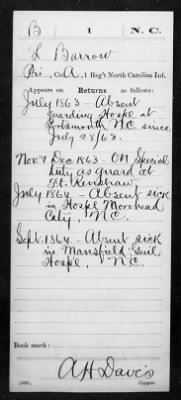 B | 1 | N. C.
L Barrow
Pri, call, 1 Reg't North Carolina Inf.
Appears on Returns as follows:
July 1863 - Absent
guarding Hospl at
Portsmouth N.C. since
July 28/63.
Nov & Dec 1863 - On Special
duty as guard at
Ft. Kenshaw.
July 1864 - Absent sick
in Hospl Morehead
City, N.C.
Sept. 1864 - Absent sick
in Mansfield Genl
Hospl, N.C.
Book mark:
A H Davis
Copyist.